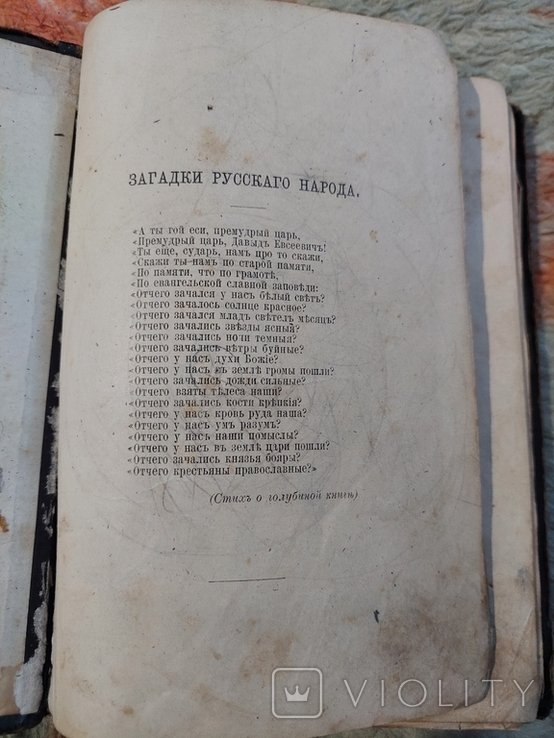 ЗАГАДКИ РУССКАГО НАРОДА.
«А ты гой еси, премудрый царь,
«Премудрый царь, Давыдъ Евсеевичъ!
«Ты еще, сударь, намъ про то скажи,
«Скажи ты намъ по старой памяти,
«По памяти, что по грамотѣ,
«По евангельской славной заповѣди:
«Отчего зачался у насъ бѣлый свѣтъ?
«Отчего зачалось солнце красное?
«Отчего зачался младъ свѣтелъ мѣсяцъ?
«Отчего зачались звѣзды ясныя?
«Отчего зачались ночи темныя?
«Отчего зачались вѣтры буйные?
«Отчего у насъ духи Божіе?
«Отчего у насъ въ землѣ громы пошли?
«Отчего зачались дожди сильные?
«Отчего взяты тѣлеса наши?
«Отчего зачались кости крѣпкія?
«Отчего у насъ кровь руда наша?
«Отчего у насъ умъ разумъ?
«Отчего у насъ наши помыслы?
«Отчего у насъ въ землѣ цари пошли?
«Отчего зачались князья бояры?
«Отчего крестьяны православные?»
(Стихъ о голубиной книгѣ)
VIOLITY